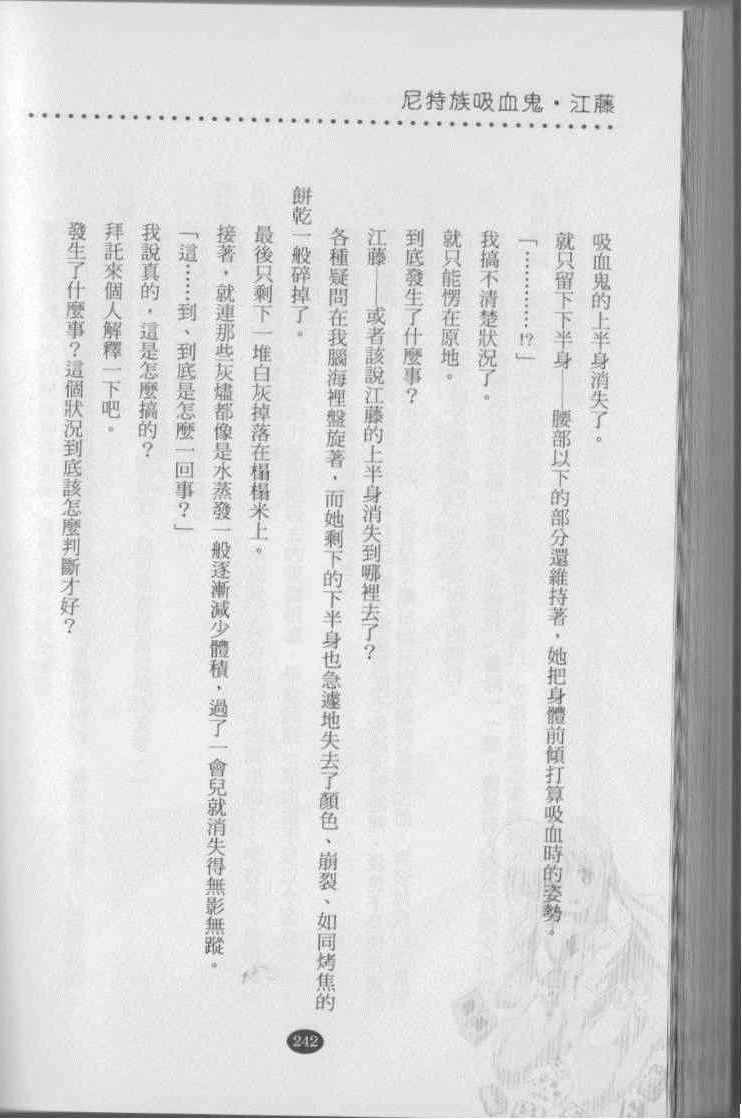 尼特族吸血鬼・江藤
吸血鬼的上半身消失了。
就只留下下半身——腰部以下的部分還維持著，她把身體前傾打算吸血時的姿勢。
「…………!?」
我搞不清楚狀況了。
就只能愣在原地。
到底發生了什麼事？
江藤——或者該說江藤的上半身消失到哪裡去了？
各種疑問在我腦海裡盤旋著，而她剩下的下半身也急遽地失去了顏色、崩裂、如同烤焦的
餅乾一般碎掉了。
最後只剩下一堆白灰掉落在榻榻米上。
接著，就連那些灰燼都像是水蒸發一般逐漸減少體積，過了一會兒就消失得無影無蹤。
「這……到、到底是怎麼一回事？」
我說真的，這是怎麼搞的？
拜託來個人解釋一下吧。
發生了什麼事？這個狀況到底該怎麼判斷才好？
242